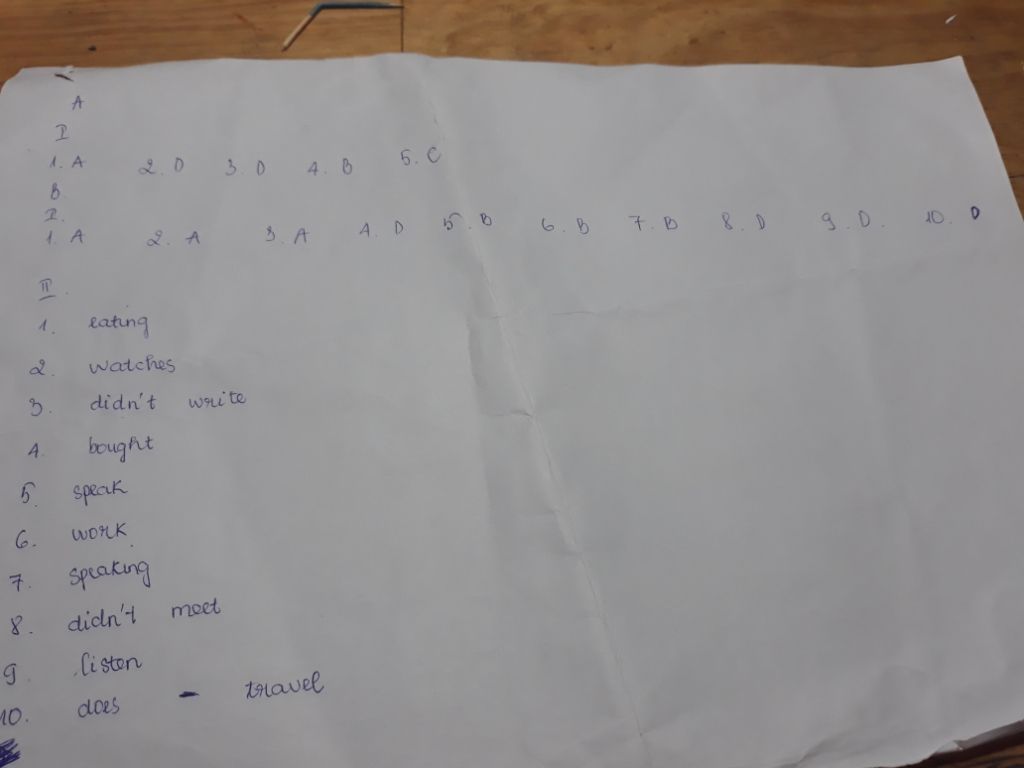 A
I
1. A 2. D 3. D 4. B 5. C
B.
I.
1. A 2. A 3. A 4. D 5. B 6. B 7. B 8. D 9. D. 10. D
II.
1. eating
2. watches
3. didn't write
4. bought
5. speak
6. work
7. speaking
8. didn't meet
9. listen
10. does - travel